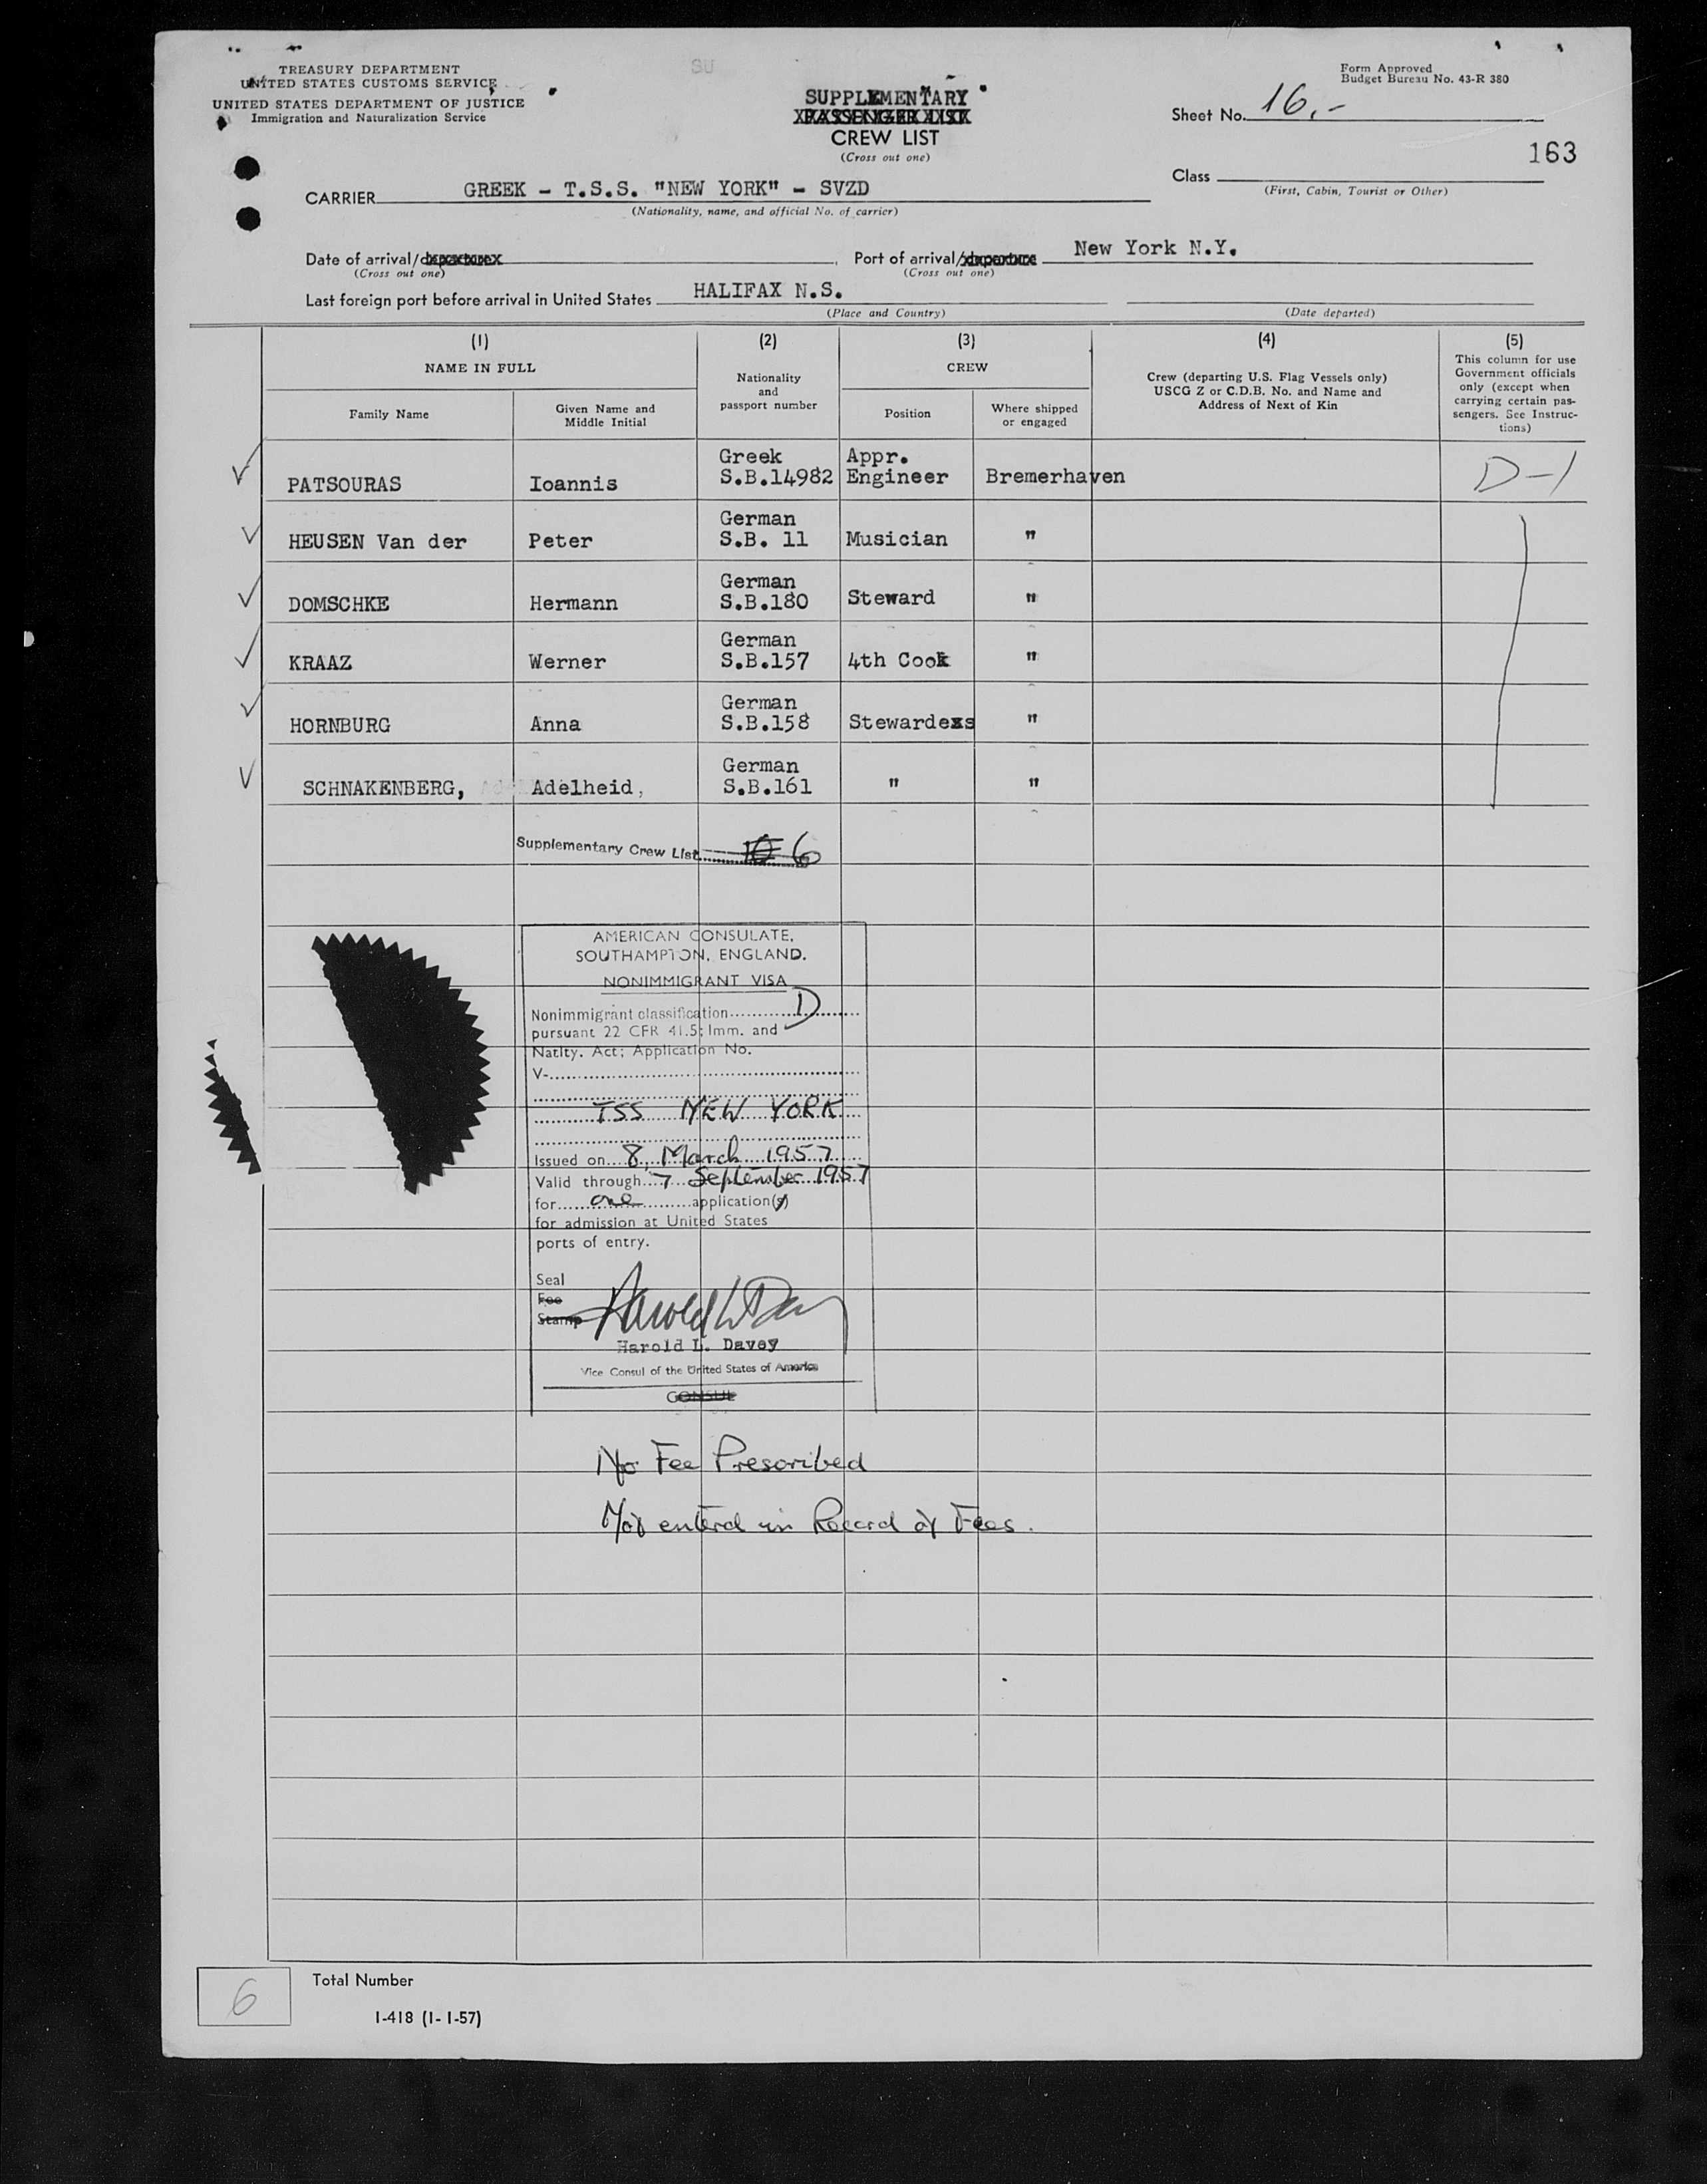 TREASURY DEPARTMENT
UNITED STATES CUSTOMS SERVICE
UNITED STATES DEPARTMENT OF JUSTICE
Immigration and Naturalization Service
SU
SUPPLEMENTARY
PASSENGER LIST
CREW LIST
(Cross out one)
Form Approved
Budget Bureau No. 43-R 380
Sheet No. 16.-
163
Class
(First, Cabin, Tourist or Other)
CARRIER GREEK - T.S.S. "NEW YORK" - SVZD
(Nationality, name, and official No. of carrier)
Date of arrival/departure
(Cross out one)
Port of arrival/departure New York N.Y.
(Cross out one)
Last foreign port before arrival in United States HALIFAX N.S.
(Place and Country)
(Date departed)
(1) (2) (3) (4) (5)
NAME IN FULL
Family Name
Given Name and
Middle Initial
Nationality
and
passport number
CREW
Position
Where shipped
or engaged
Crew (departing U.S. Flag Vessels only)
USCG Z or C.D.B. No. and Name and
Address of Next of Kin
This column for use
Government officials
only (except when
carrying certain pas-
sengers. See Instruc-
tions)
Greek Appr.
PATSOURAS Ioannis S.B.14982 Engineer Bremerhaven D-1
German
HEUSEN Van der Peter S.B. 11 Musician "
German
DOMSCHKE Hermann S.B.180 Steward "
German
KRAAZ Werner S.B.157 4th Cook "
German
HORNBURG Anna S.B.158 Stewardess "
German
SCHNAKENBERG, Adelheid, S.B.161 " "
Supplementary Crew List 6
AMERICAN CONSULATE,
SOUTHAMPTON, ENGLAND.
NONIMMIGRANT VISA
Nonimmigrant classification D
pursuant 22 CFR 41.5; Imm. and
Natlty. Act; Application No.
V-
TSS NEW YORK
Issued on 8, March 1957
Valid through 7 September 1957
for one application(s)
for admission at United States
ports of entry.
Seal
Fee
Stamp
Harold L. Davey
Harold L. Davey
Vice Consul of the United States of America
CONSUL
No Fee Prescribed
Not entered in Record of Fees.
6
Total Number
I-418 (1-1-57)